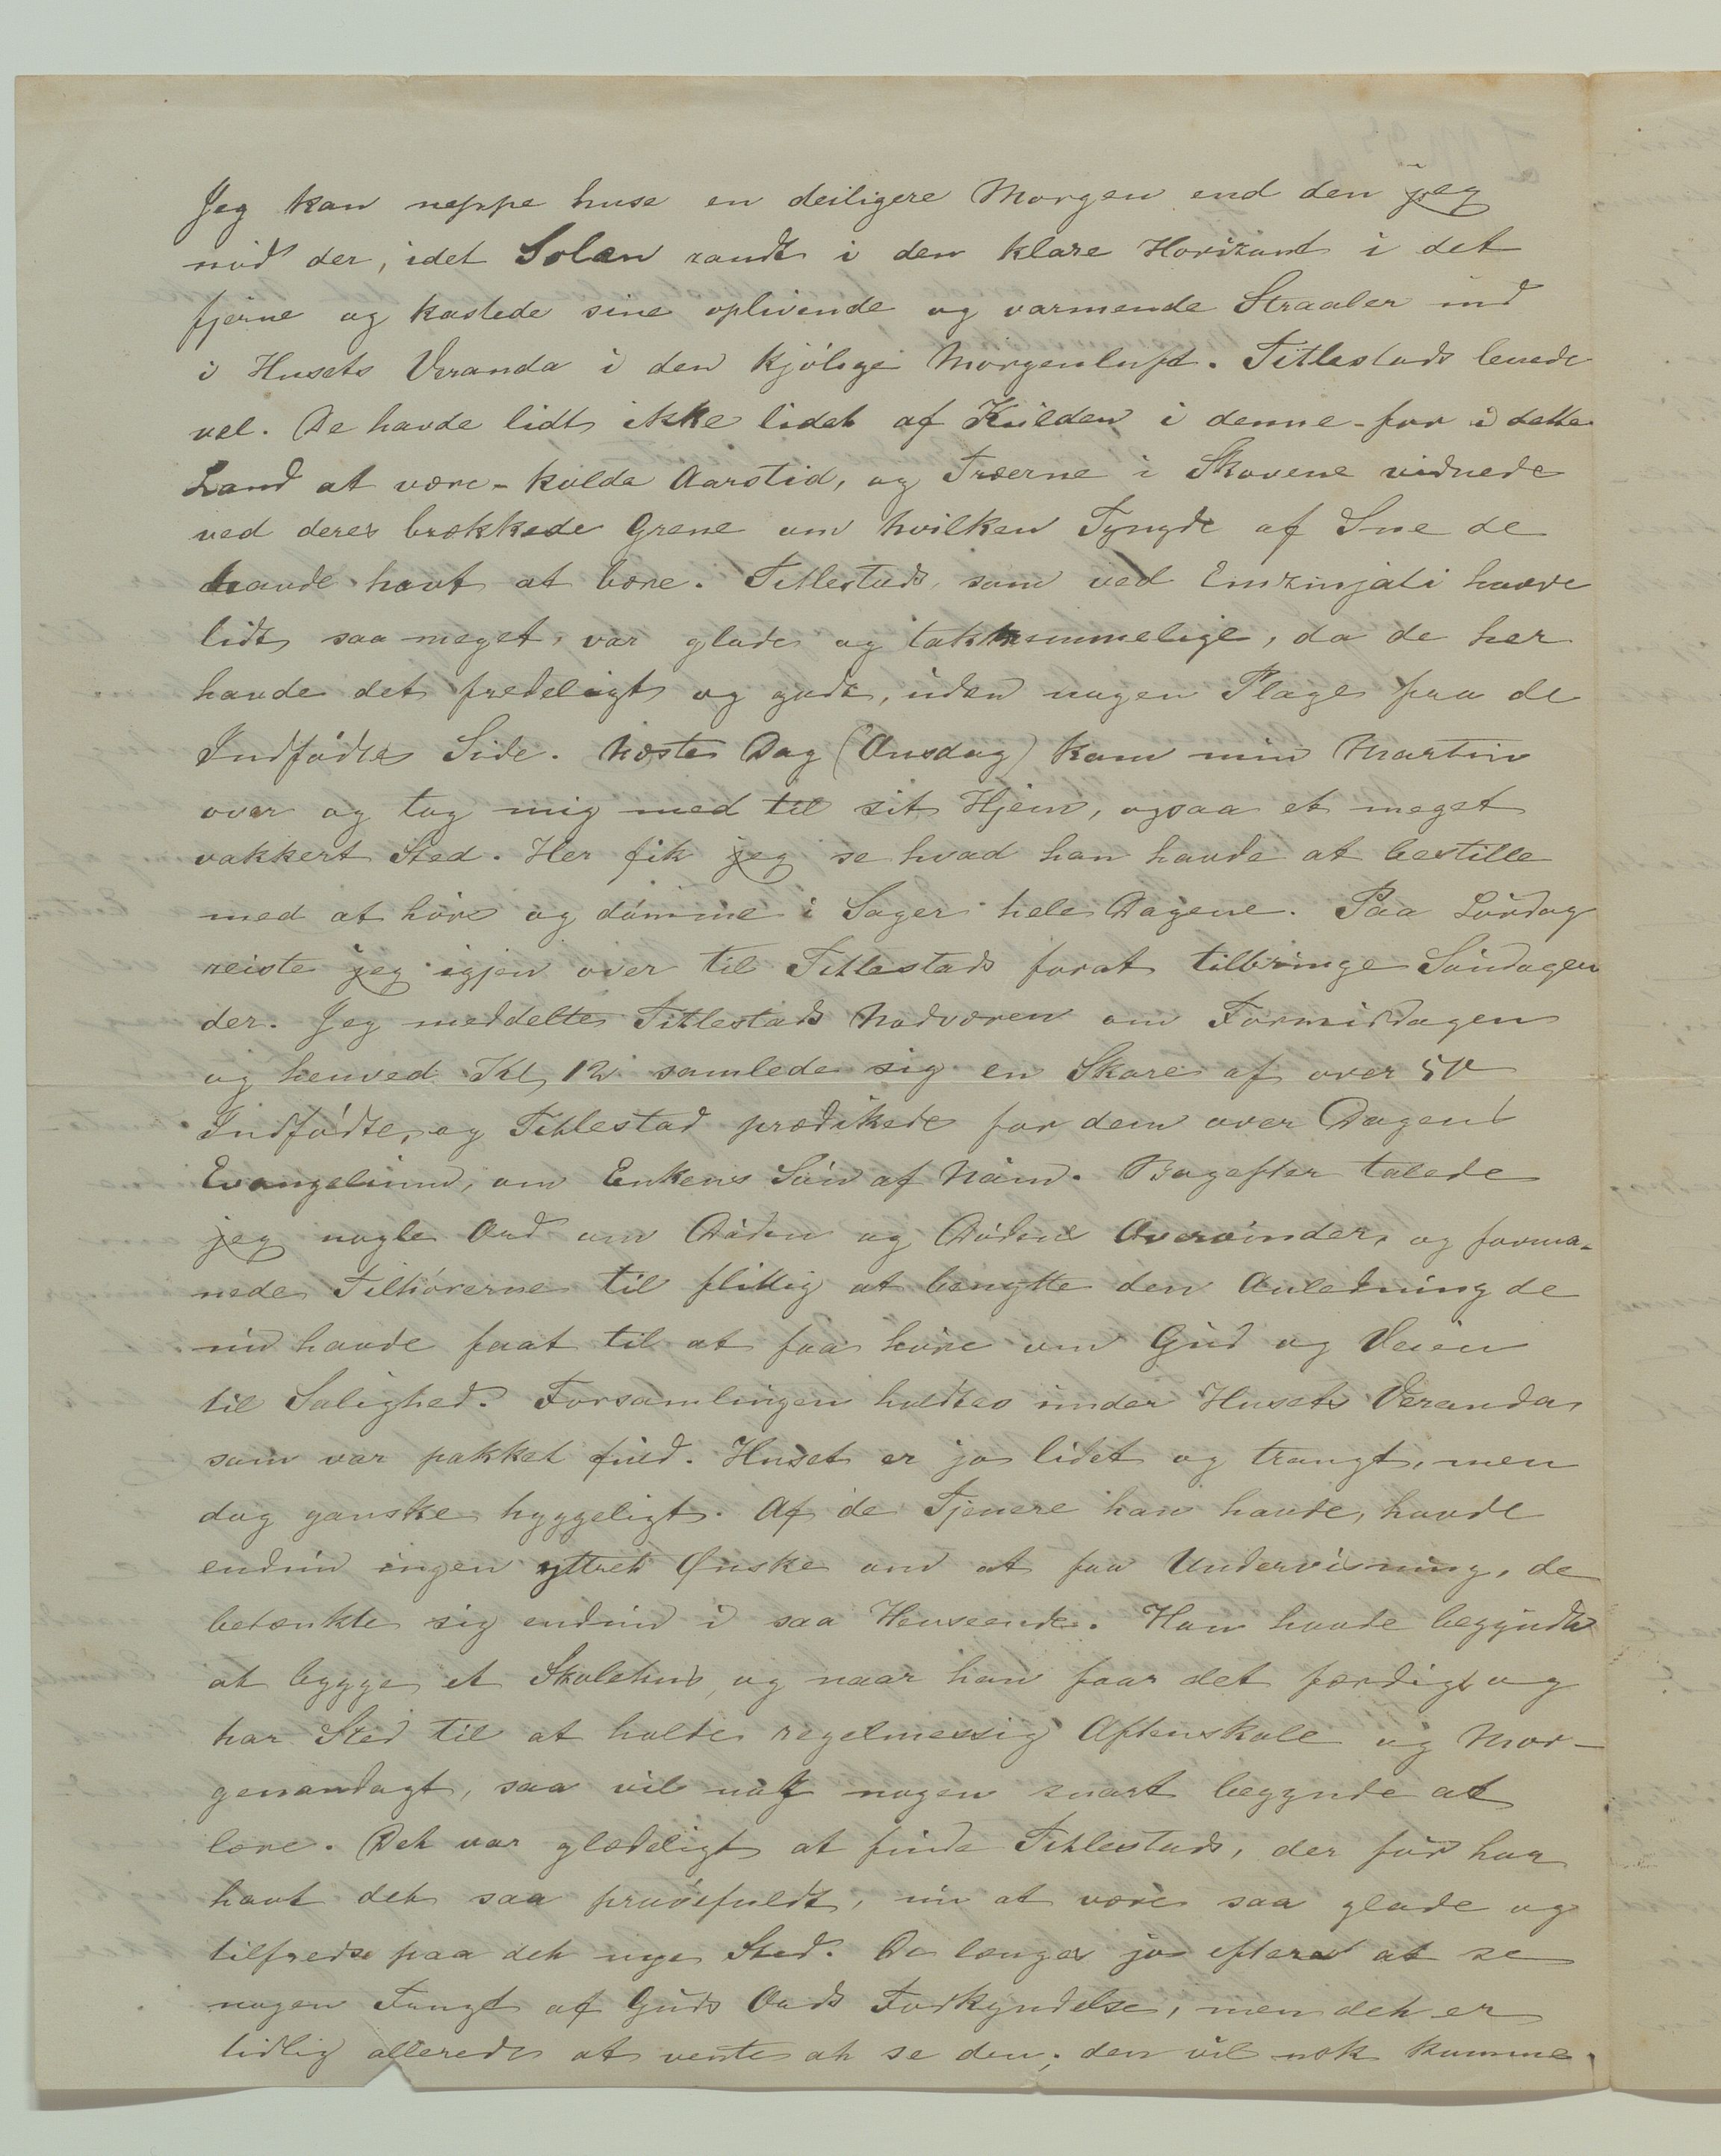 Jeg kan neppe huse en deiligere Morgen end den jeg
nød der, idet Solen randt i den klare Horizont i det
fjerne og kastede sine oplivende og varmende Straaler ind
i Husets Veranda i den kjølige Morgenluft. Titlestads levede
vel. De havde lidt ikke lidet af Kulden i denne - for i dette
Land at være - kolde Aarstid, og Træerne i Skovene vidnede
ved deres brækkede Grene om hvilken Tyngde af Sne de
havde havt at bære. Titlestads, som ved Emzinjati havde
lidt saa meget, var glade og taknemmelige, da de her
havde det fredeligt og godt, uden nogen Plage fra de
Indfødtes Side. Næste Dag (Onsdag) kom min Martin
over og tog mig med til sit Hjem, ogsaa et meget
vakkert Sted. Her fik jeg se hvad han havde at bestille
med at høre og dømme i Sager hele Dagene. Paa Lørdag
reiste jeg igjen over til Titlestads forat tilbringe Søndagen
der. Jeg meddelte Titlestads Nadveren om Formiddagen
og henved Kl. 12 samlede sig en Skare af over 50
Indfødte, og Titlestad prædikede for dem over Dagens
Evangelium, om Enkens Søn af Nain. Bagefter talede
jeg nogle Ord om Døden og Dødens Overvinder, og forma-
nede Tilhørerne til flittig at benytte den Anledning de
nu havde faaet til at faa høre om Gud og Veien
til Salighed. Forsamlingen holdtes under Husets Veranda
som var pakket fuld. Huset er jo lidet og trangt, men
dog ganske hyggeligt. Af de Tjenere han havde, havde
endnu ingen yttret Ønske om at faa Undervisning, de
betænkte sig endnu i saa Henseende. Han havde begyndt
at bygge et Skolehus, og naar han faar det færdigt og
har Sted til at holde regelmessig Aftenskole og Mor-
genandagt, saa vil nok nogen snart begynde at
lære. Det var glædeligt at finde Titlestads, der før har
havt det saa prøvefuldt, nu at være saa glade og
tilfredse paa det nye Sted. De længes jo efter at se
nogen Frugt af Guds Ords Forkyndelse, men det er
tidlig allerede at vente at se den; den vil nok komme.